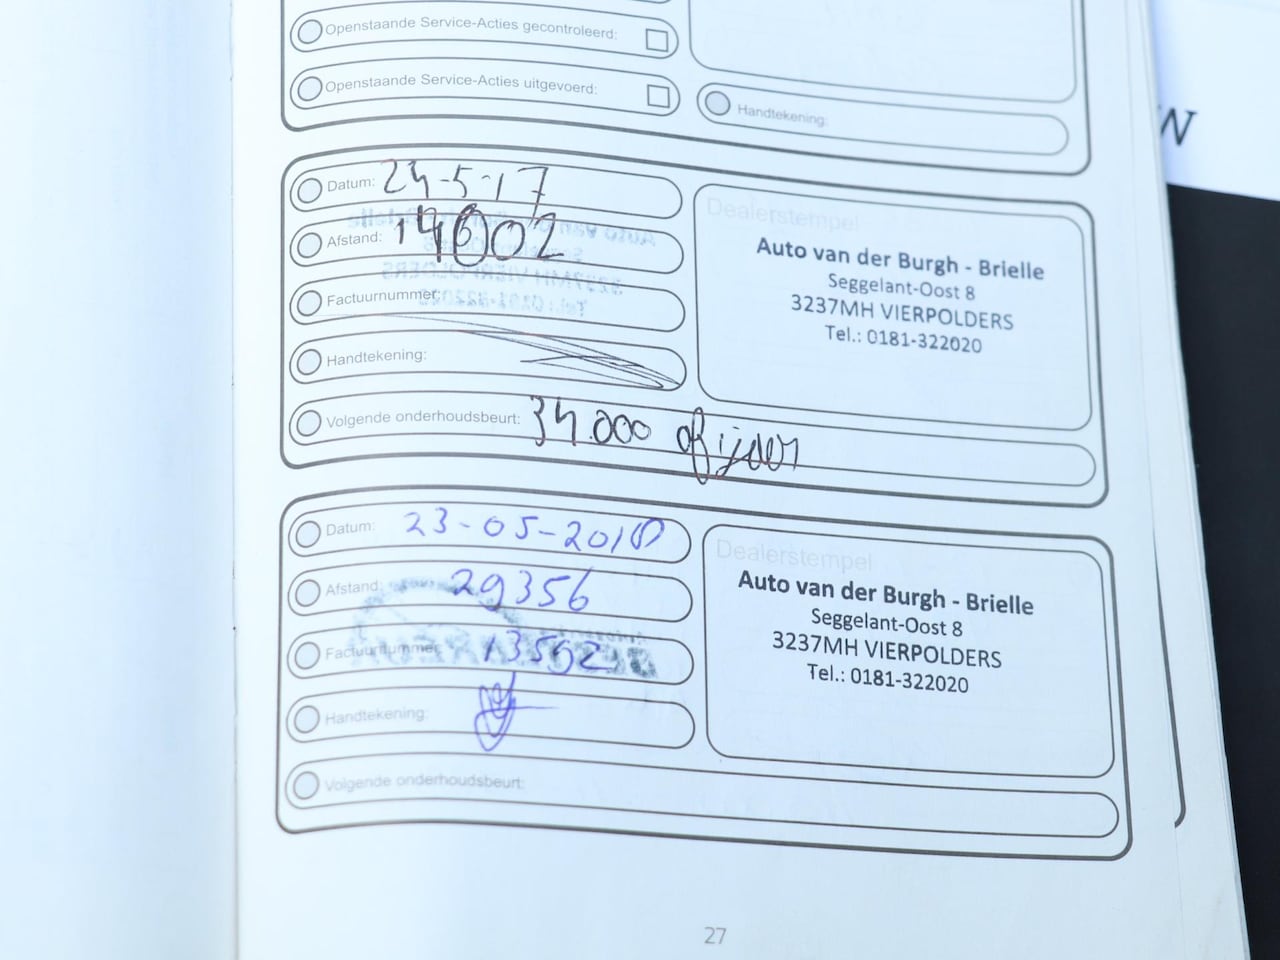 Openstaande Service-Acties gecontroleerd:
Openstaande Service-Acties uitgevoerd:
Handtekening:
Datum: 24-5-17
Afstand:
Factuurnummer:
Handtekening:
Volgende onderhoudsbeurt: 34.000 of ijder
Dealerstempel
Auto van der Burgh - Brielle
Seggelant-Oost 8
3237MH VIERPOLDERS
Tel.: 0181-322020
Datum: 23-05-2018
Afstand: 29356
Factuurnummer: 13592
Handtekening:
Volgende onderhoudsbeurt:
Dealerstempel
Auto van der Burgh - Brielle
Seggelant-Oost 8
3237MH VIERPOLDERS
Tel.: 0181-322020
27
W